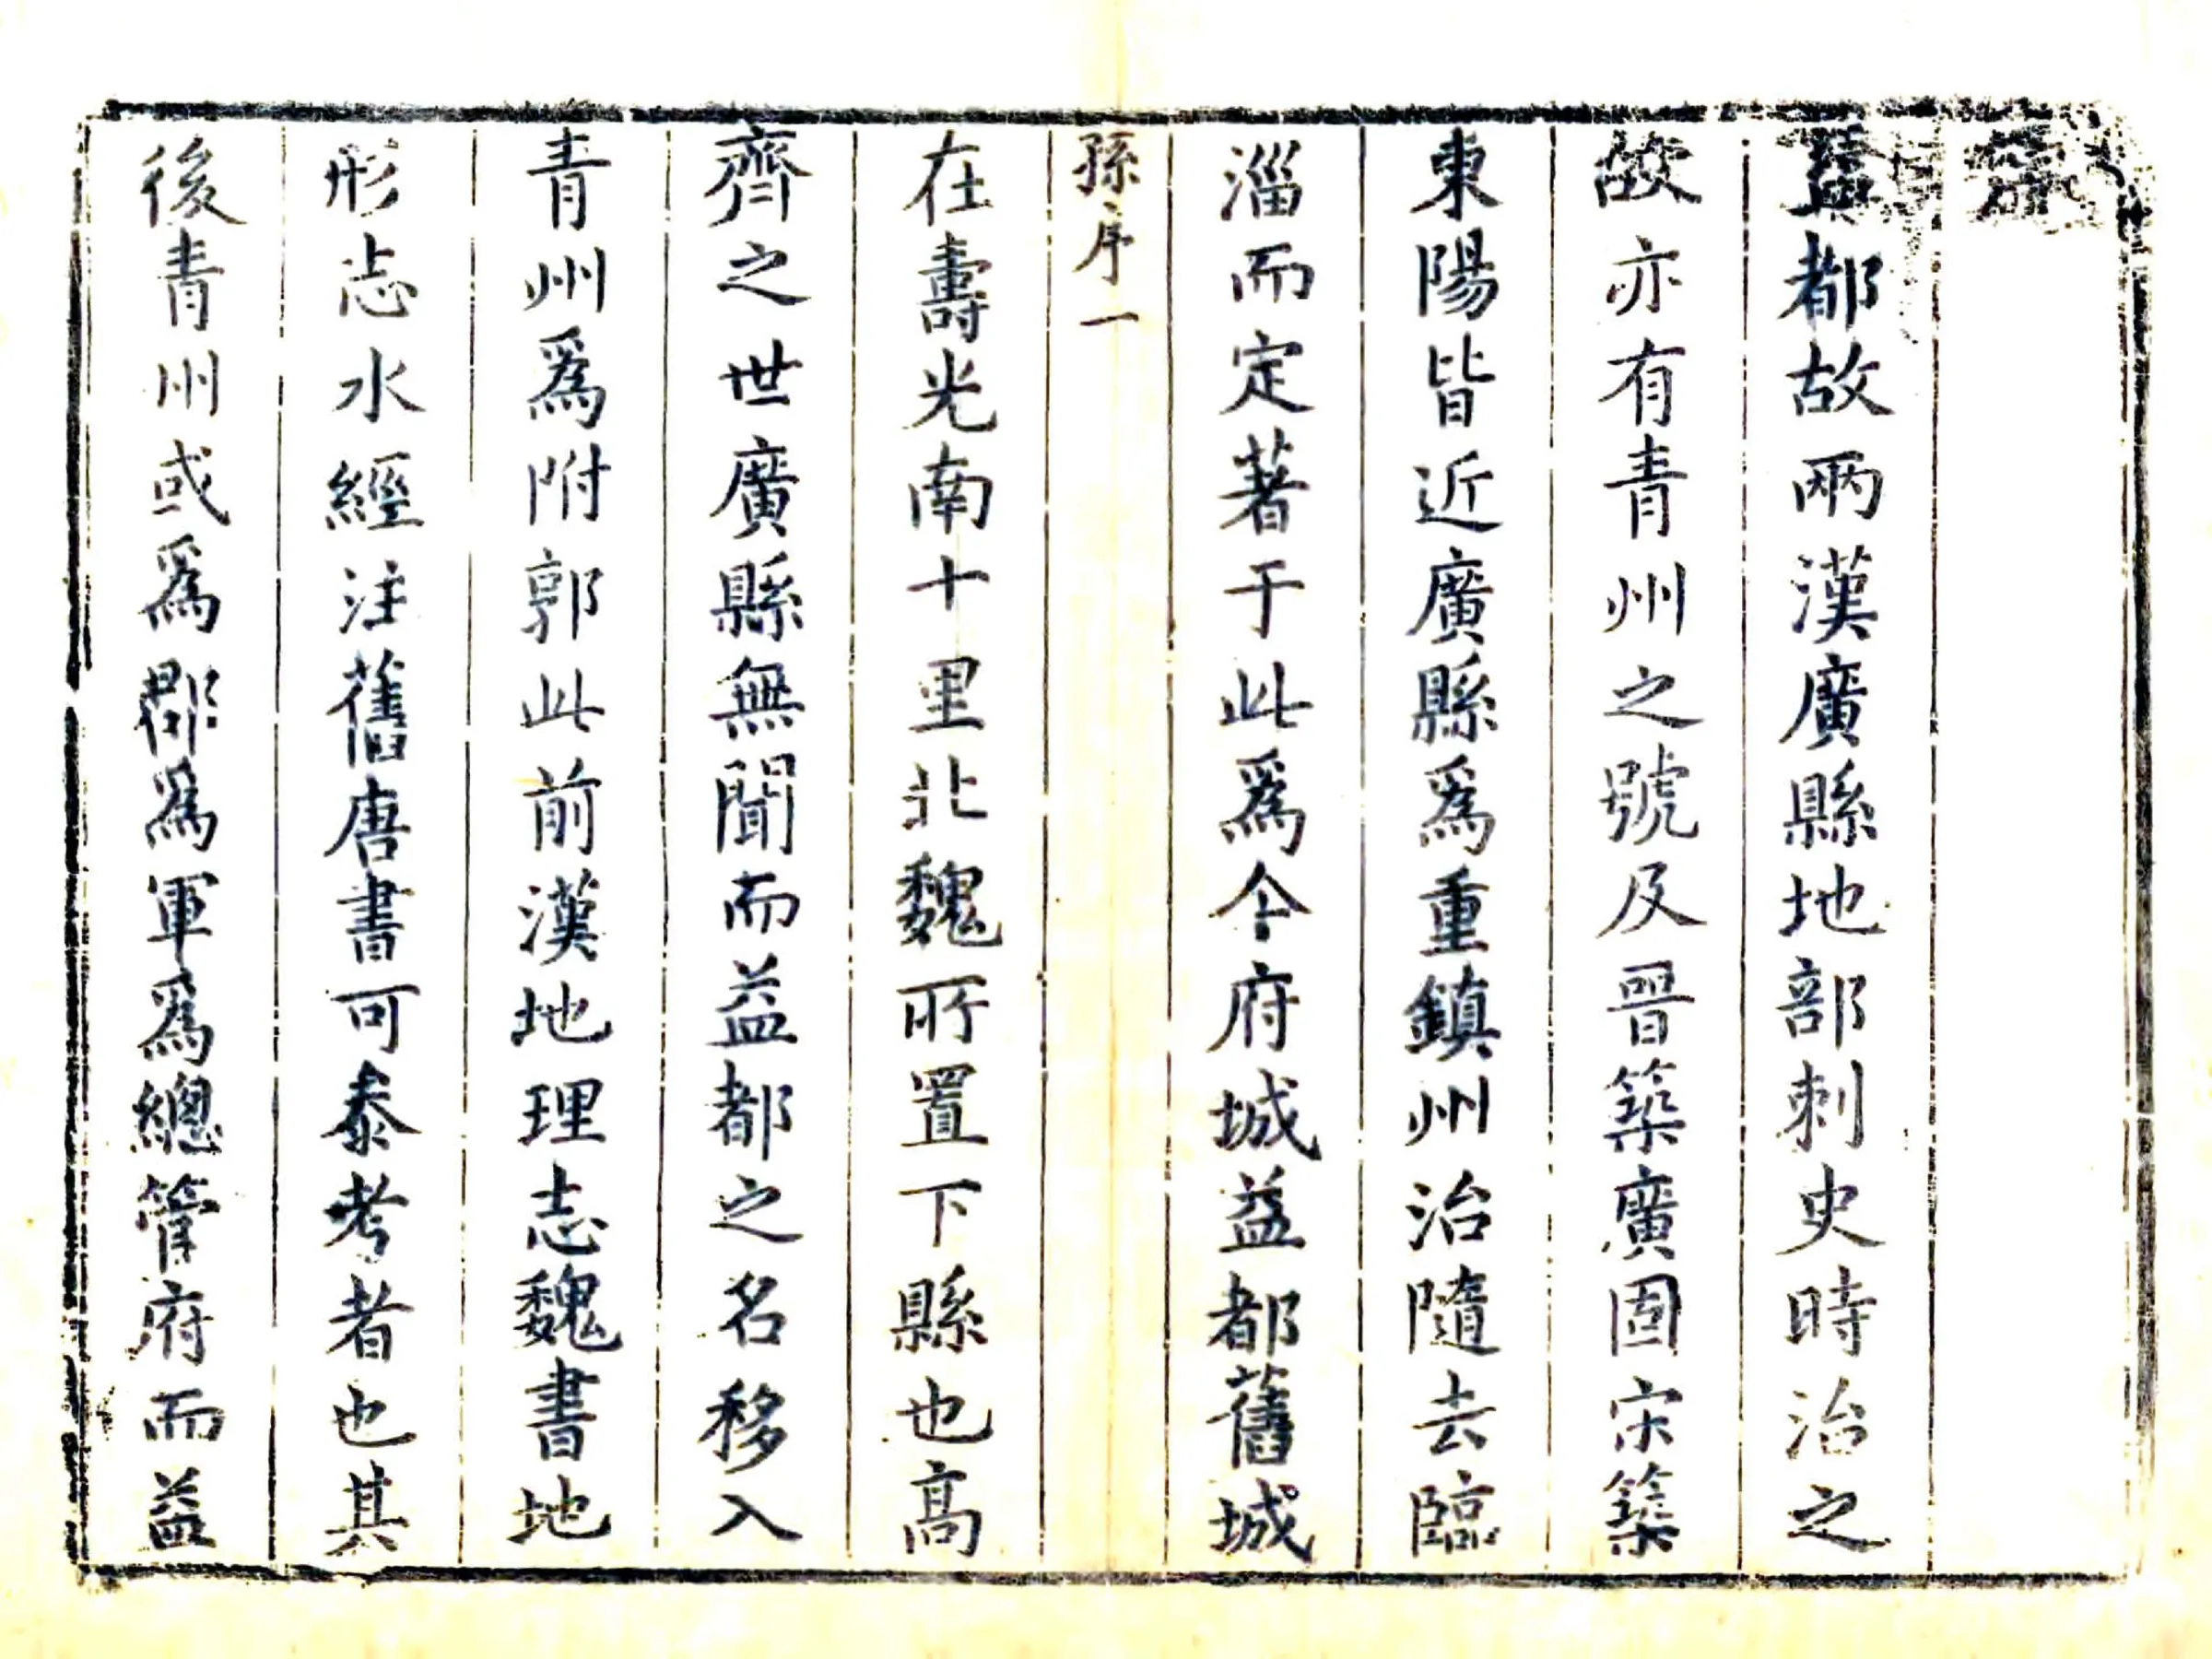 益都故兩漢廣縣地部刺史時治之
故亦有青州之號及晉築廣固宋築
東陽皆近廣縣爲重鎮州治隨去臨
淄而定著于此爲今府城益都舊城
孫序一
在壽光南十里北魏所置下縣也高
齊之世廣縣無聞而益都之名移入
青州爲附郭此前漢地理志魏書地
形志水經注舊唐書可叅考者也其
後青州或爲郡爲軍爲總管府而益